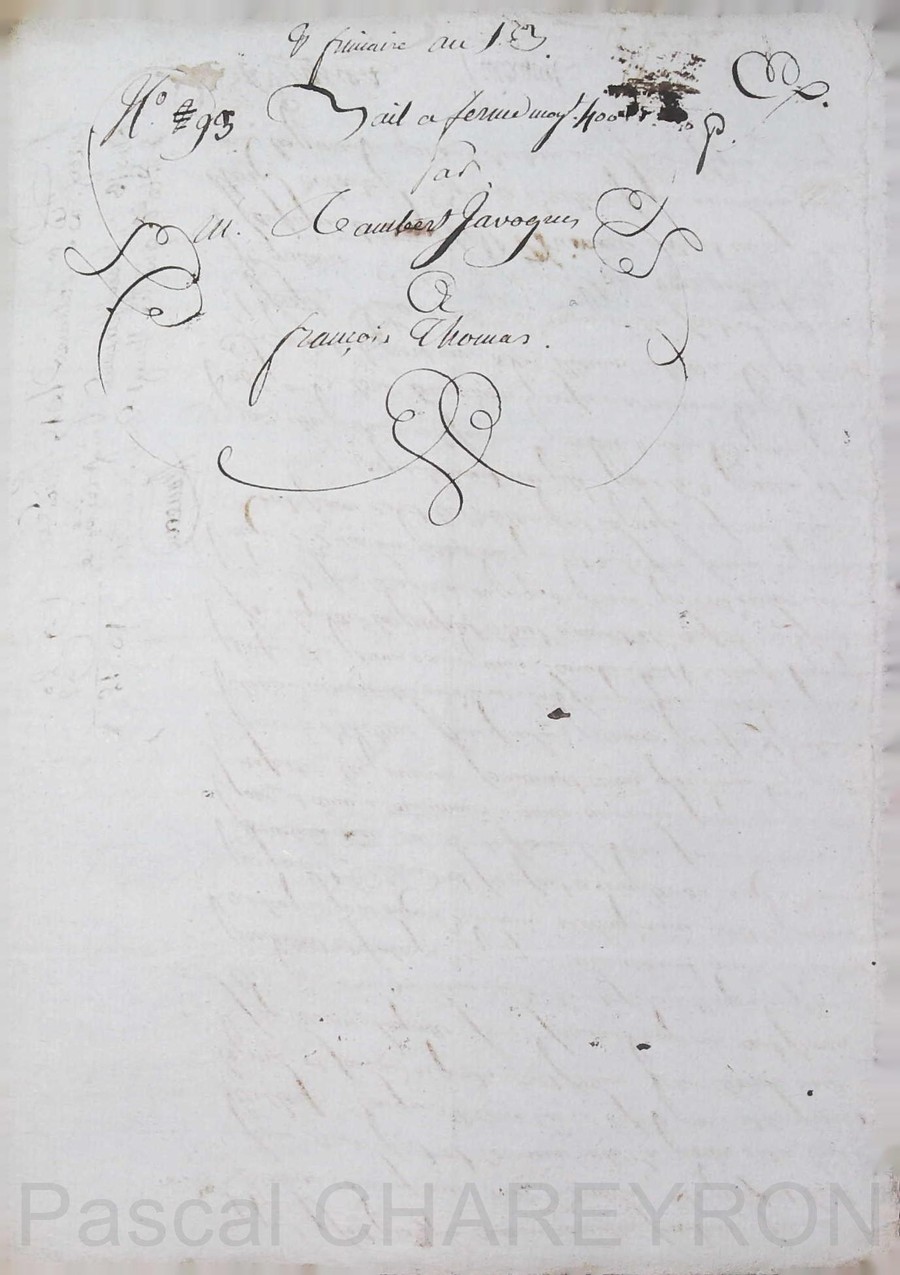 frimaire an 13
N° 93 Bail a ferme moyt. 400 p.
par
M. Rambert Javogues
A
françois Thomas.
Pascal CHAREYRON